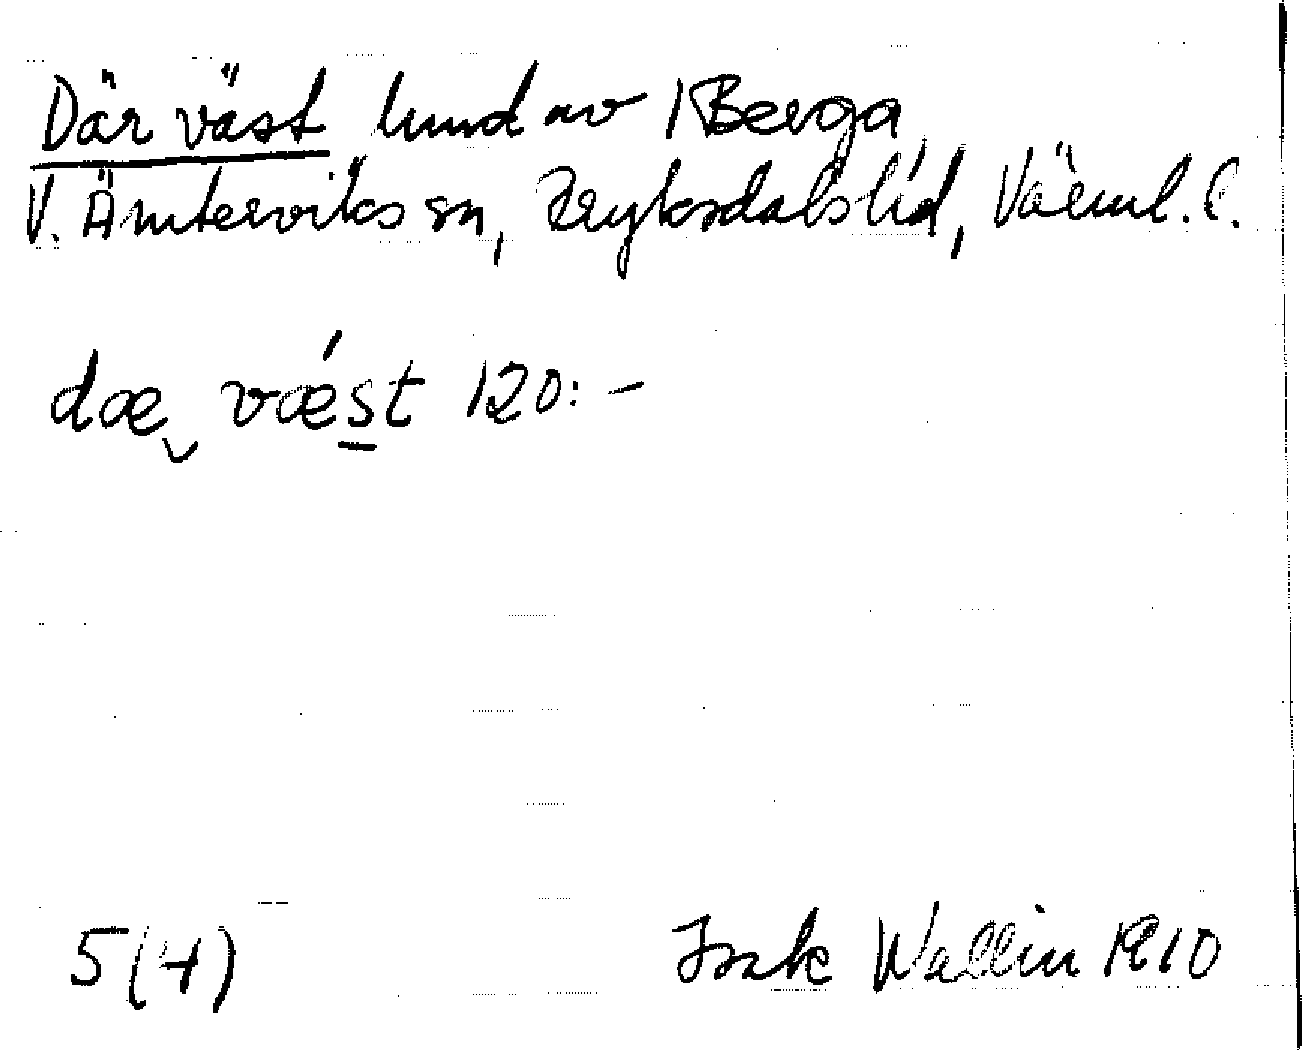 Där väst lund av Berga
V. Ämterviks sn, Fryksdals hd, Värml. l.
dæ vǽst 120:-
5(4) Isak Wallin 1910